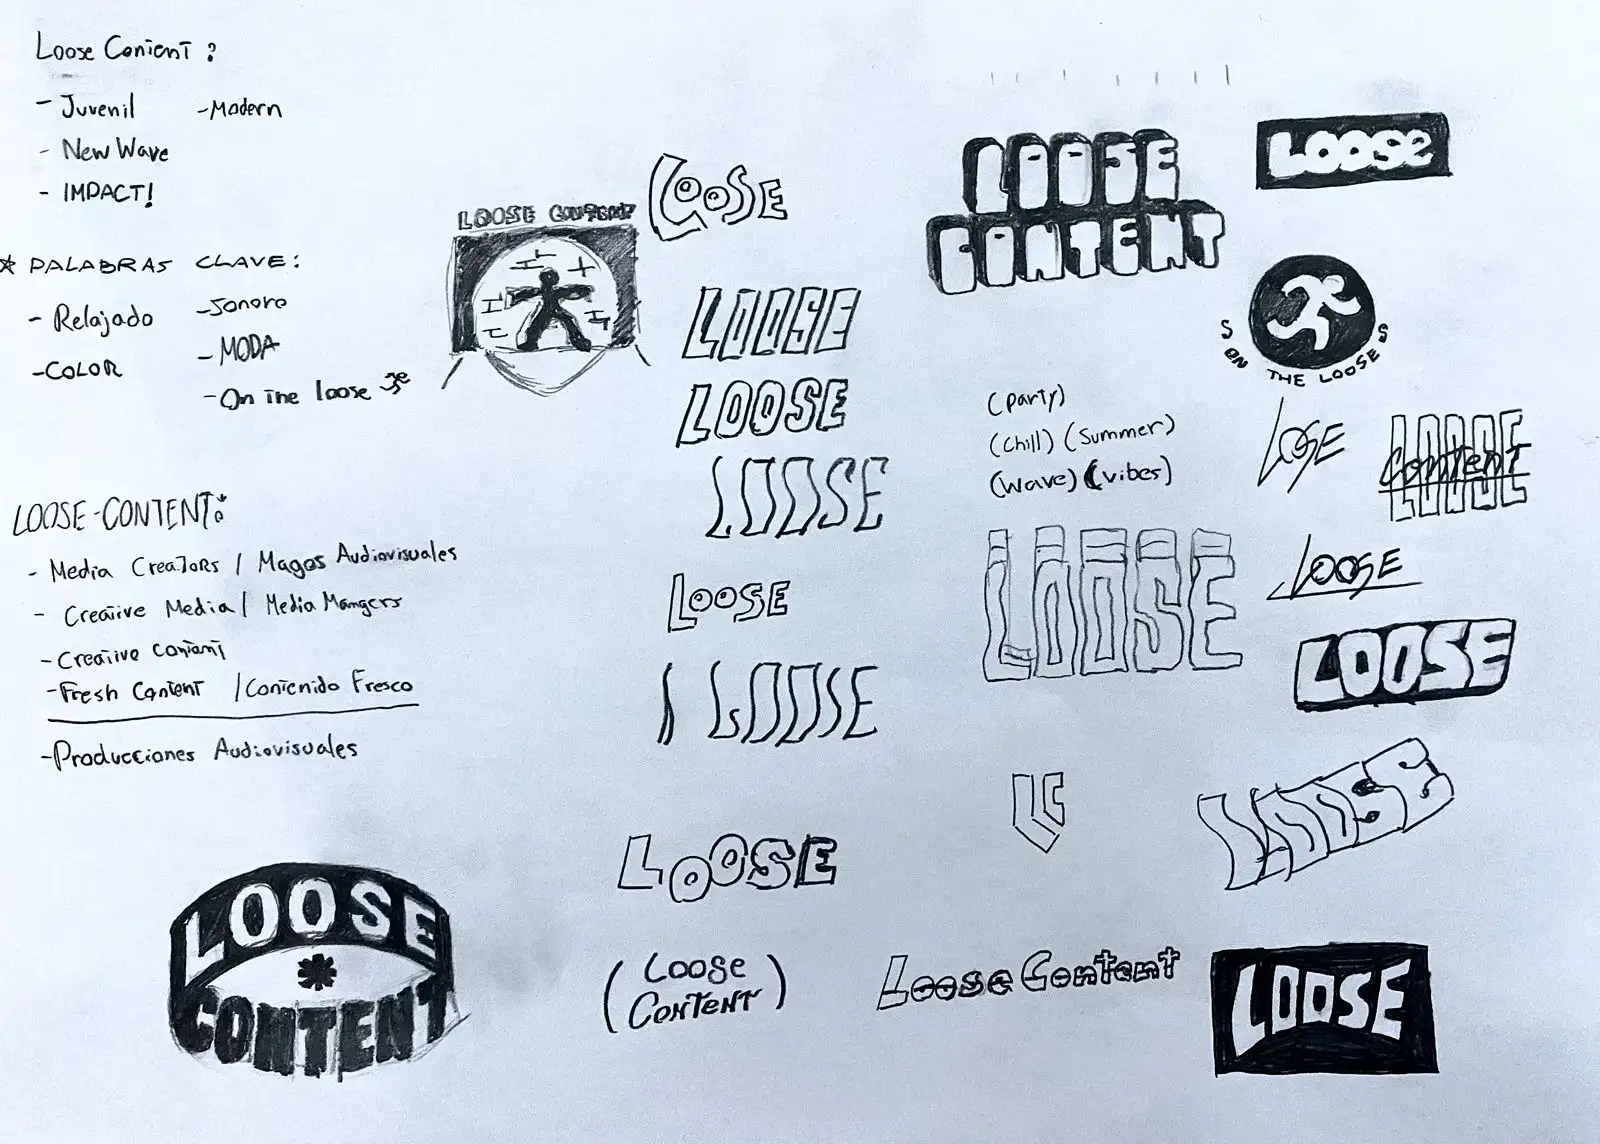 Loose Content ?
- Juvenil - Modern
- New Wave
- IMPACT!
* PALABRAS CLAVE:
- Relajado - Sonoro
- COLOR - MODA
- On the loose
LOOSE-CONTENT:
- Media Creators / Magos Audiovisuales
- Creative Media / Media Mangers
- Creative Content
- Fresh Content / Contenido Fresco
- Producciones Audiovisuales
LOOSE
*
CONTENT
LOOSE CONTENT
LOOSE
LOOSE
LOOSE
LOOSE
LOOSE
LOOSE
LOOSE
(LOOSE
CONTENT)
LOOSE
CONTENT
LOOSE
ON THE LOOSE
(Party)
(Chill) (Summer)
(Wave) (Vibes)
LOOSE
LOOSE
Content
LOOSE
LOOSE
LOOSE
LC
LOOSE
Loose Content
LOOSE